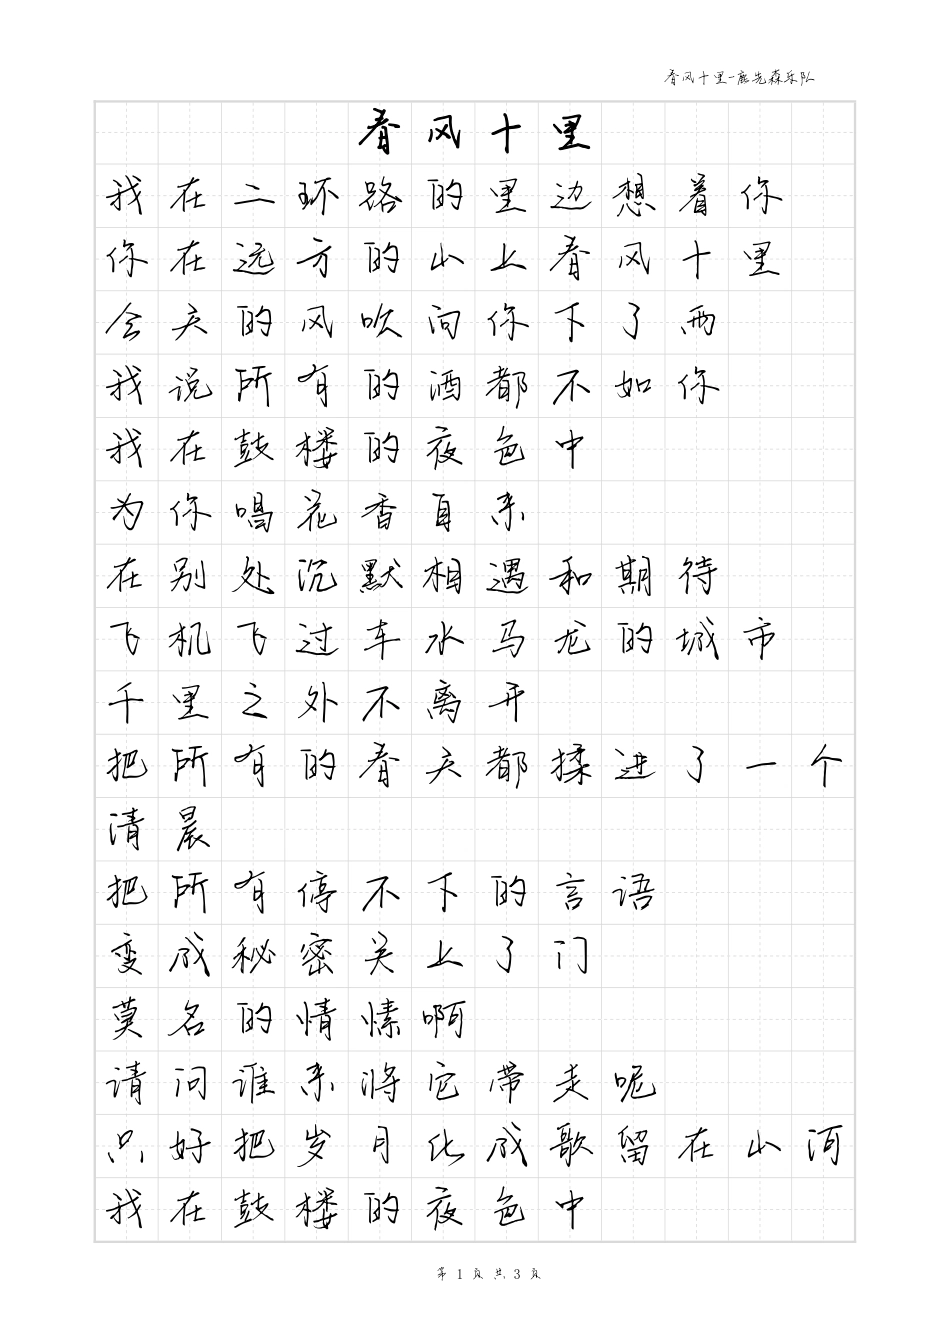 春风十里-鹿先森乐队
春风十里
我在二环路的里边想着你
你在远方的山上春风十里
今天的风吹向你下了雨
我说所有的酒都不如你
我在鼓楼的夜色中
为你唱花香自来
在别处沉默相遇和期待
飞机飞过车水马龙的城市
千里之外不离开
把所有的春天都揉进了一个
清晨
把所有停不下的言语
变成秘密关上了门
莫名的情愫啊
请问谁来将它带走呢
只好把岁月化成歌留在山河
我在鼓楼的夜色中
第 1 页 共 3 页